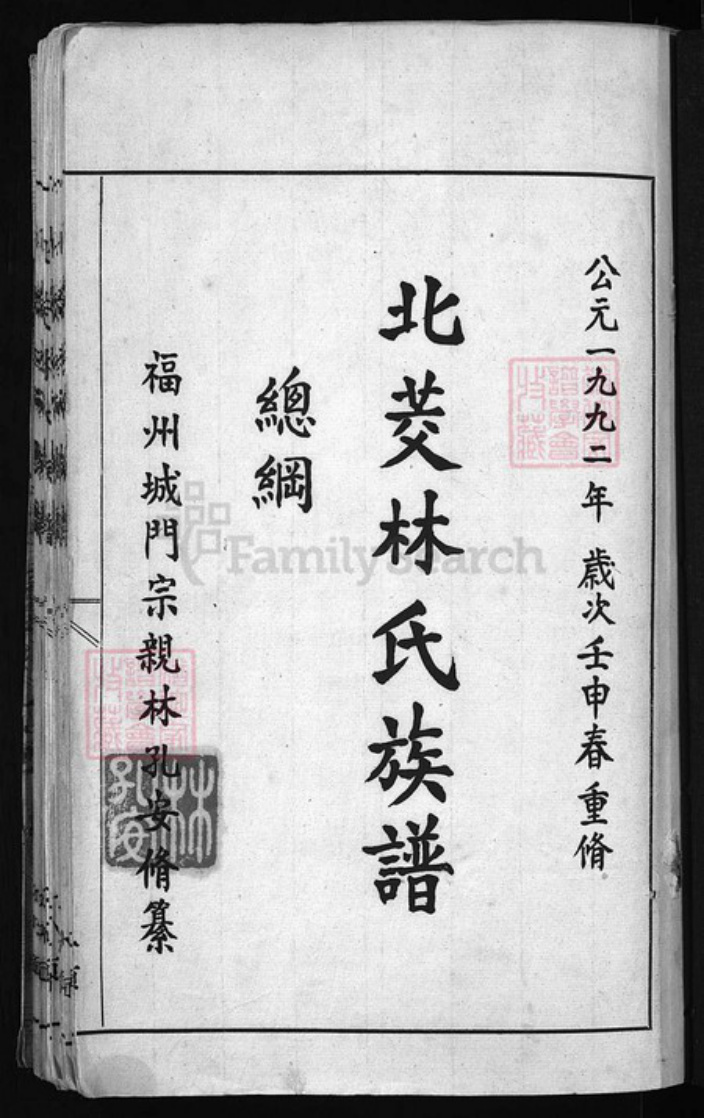 公元一九九二年 歲次壬申春重脩
北茭林氏族譜
總綱
福州城門宗親林孔安脩纂
林孔安
FamilySearch